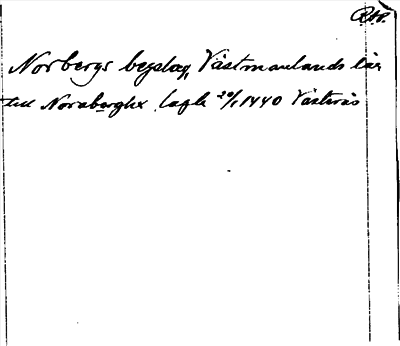 RAP.
Norbergs bergslag, Västmanlands län
till Noraberghx lagh 20/1 1440 Västerås